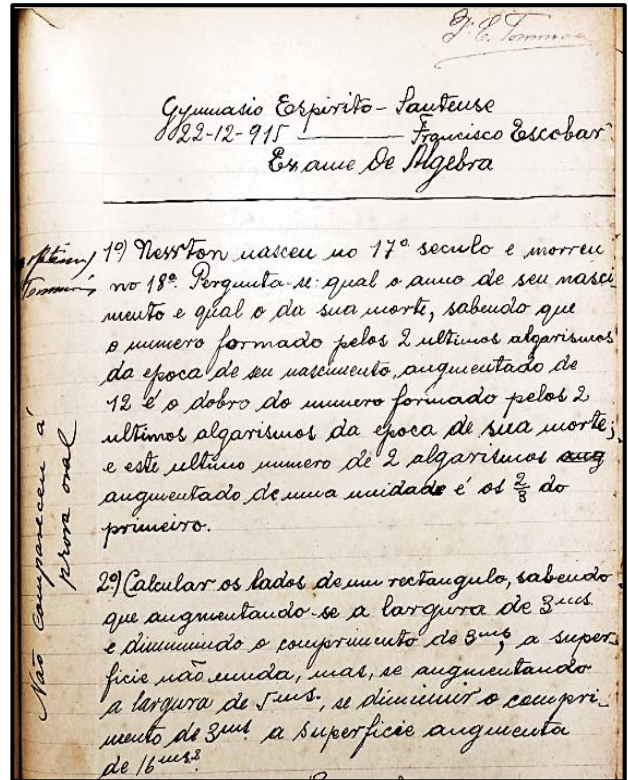 Gymnasio Espirito-Santense
22-12-915 — Francisco Escobar
Exame de Algebra
1º) Newton nasceu no 17º seculo e morreu
no 18º. Pergunta-se: qual o anno de seu nasci-
mento e qual o da sua morte, sabendo que
o numero formado pelos 2 ultimos algarismos
da epoca de seu nascimento, augmentado de
12 é o dobro do numero formado pelos 2
ultimos algarismos da epoca de sua morte;
e este ultimo numero de 2 algarismos aug
augmentado de uma unidade é os 2/3 do
primeiro.
2º) Calcular os lados de um rectangulo, sabendo
que augmentando-se a largura de 3ms.
e diminuindo o comprimento de 3ms, a super-
ficie não muda, mas, se augmentando
a largura de 5ms., se diminuir o compri-
mento de 3ms. a superficie augmenta
de 16ms²
Não compareceu á
prova oral